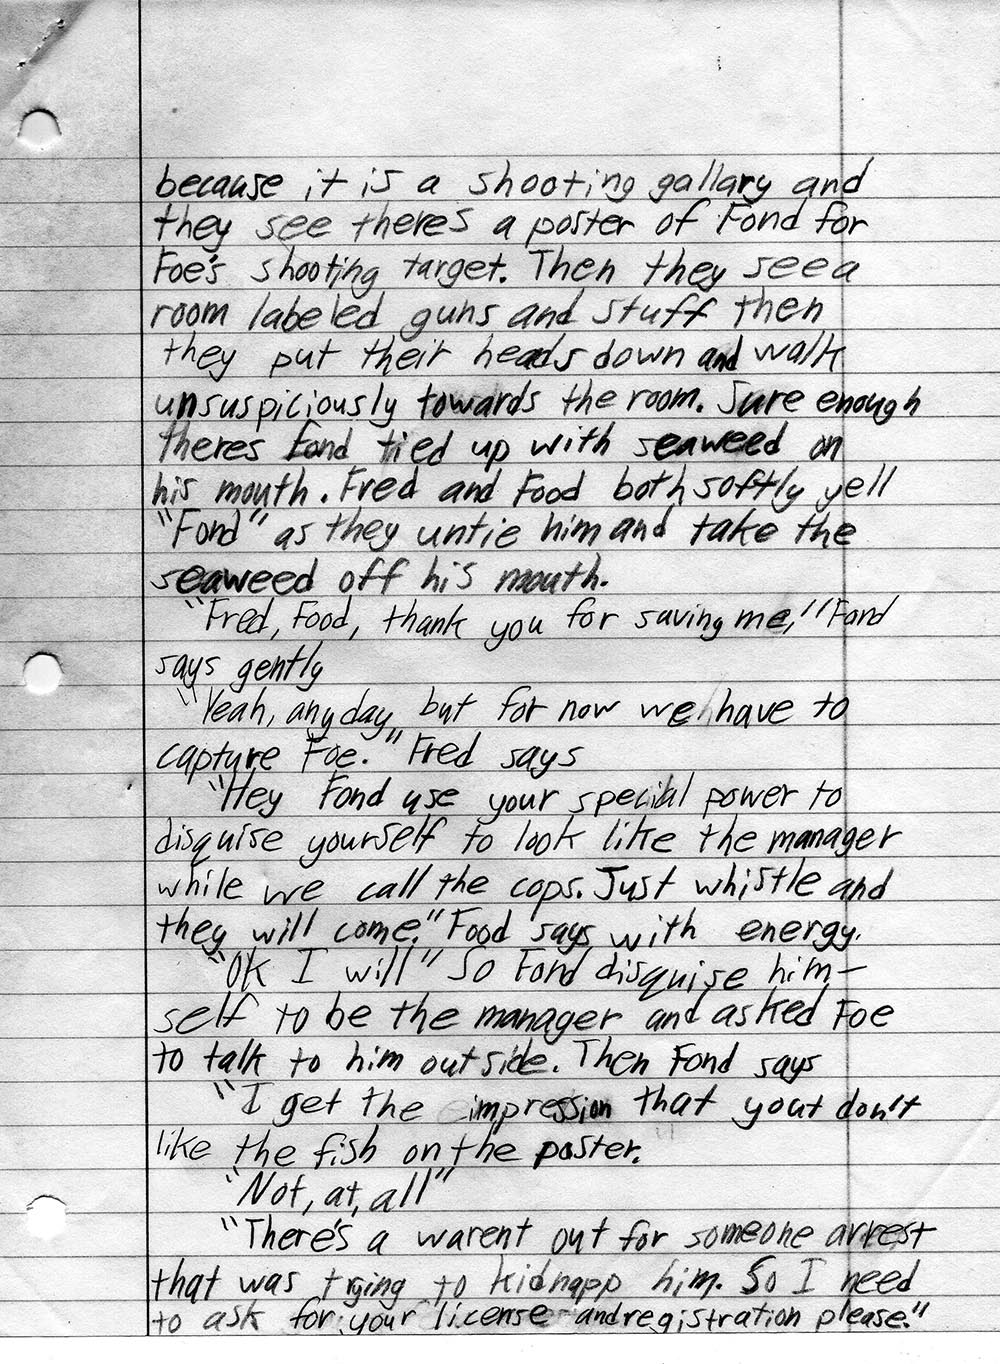 because it is a shooting gallary and
they see theres a poster of Fond for
Foe's shooting target. Then they see a
room labeled guns and stuff then
they put their heads down and walk
unsuspiciously towards the room. Sure enough
theres Fond tied up with seaweed on
his mouth. Fred and Food both softly yell
"Fond" as they untie him and take the
seaweed off his mouth.
"Fred, Food, thank you for saving me," Fond
says gently
"Yeah, any day, but for now we have to
capture Foe." Fred says
"Hey Fond use your special power to
disquise yourself to look like the manager
while we call the cops. Just whistle and
they will come." Food says with energy.
"OK I will" So Fond disquise him-
self to be the manager and asked Foe
to talk to him outside. Then Fond says
"I get the impression that yout don't
like the fish on the poster."
"Not, at, all"
"There's a warent out for someone arrest
that was trying to kidnapp him. So I need
to ask for your license and registration please."